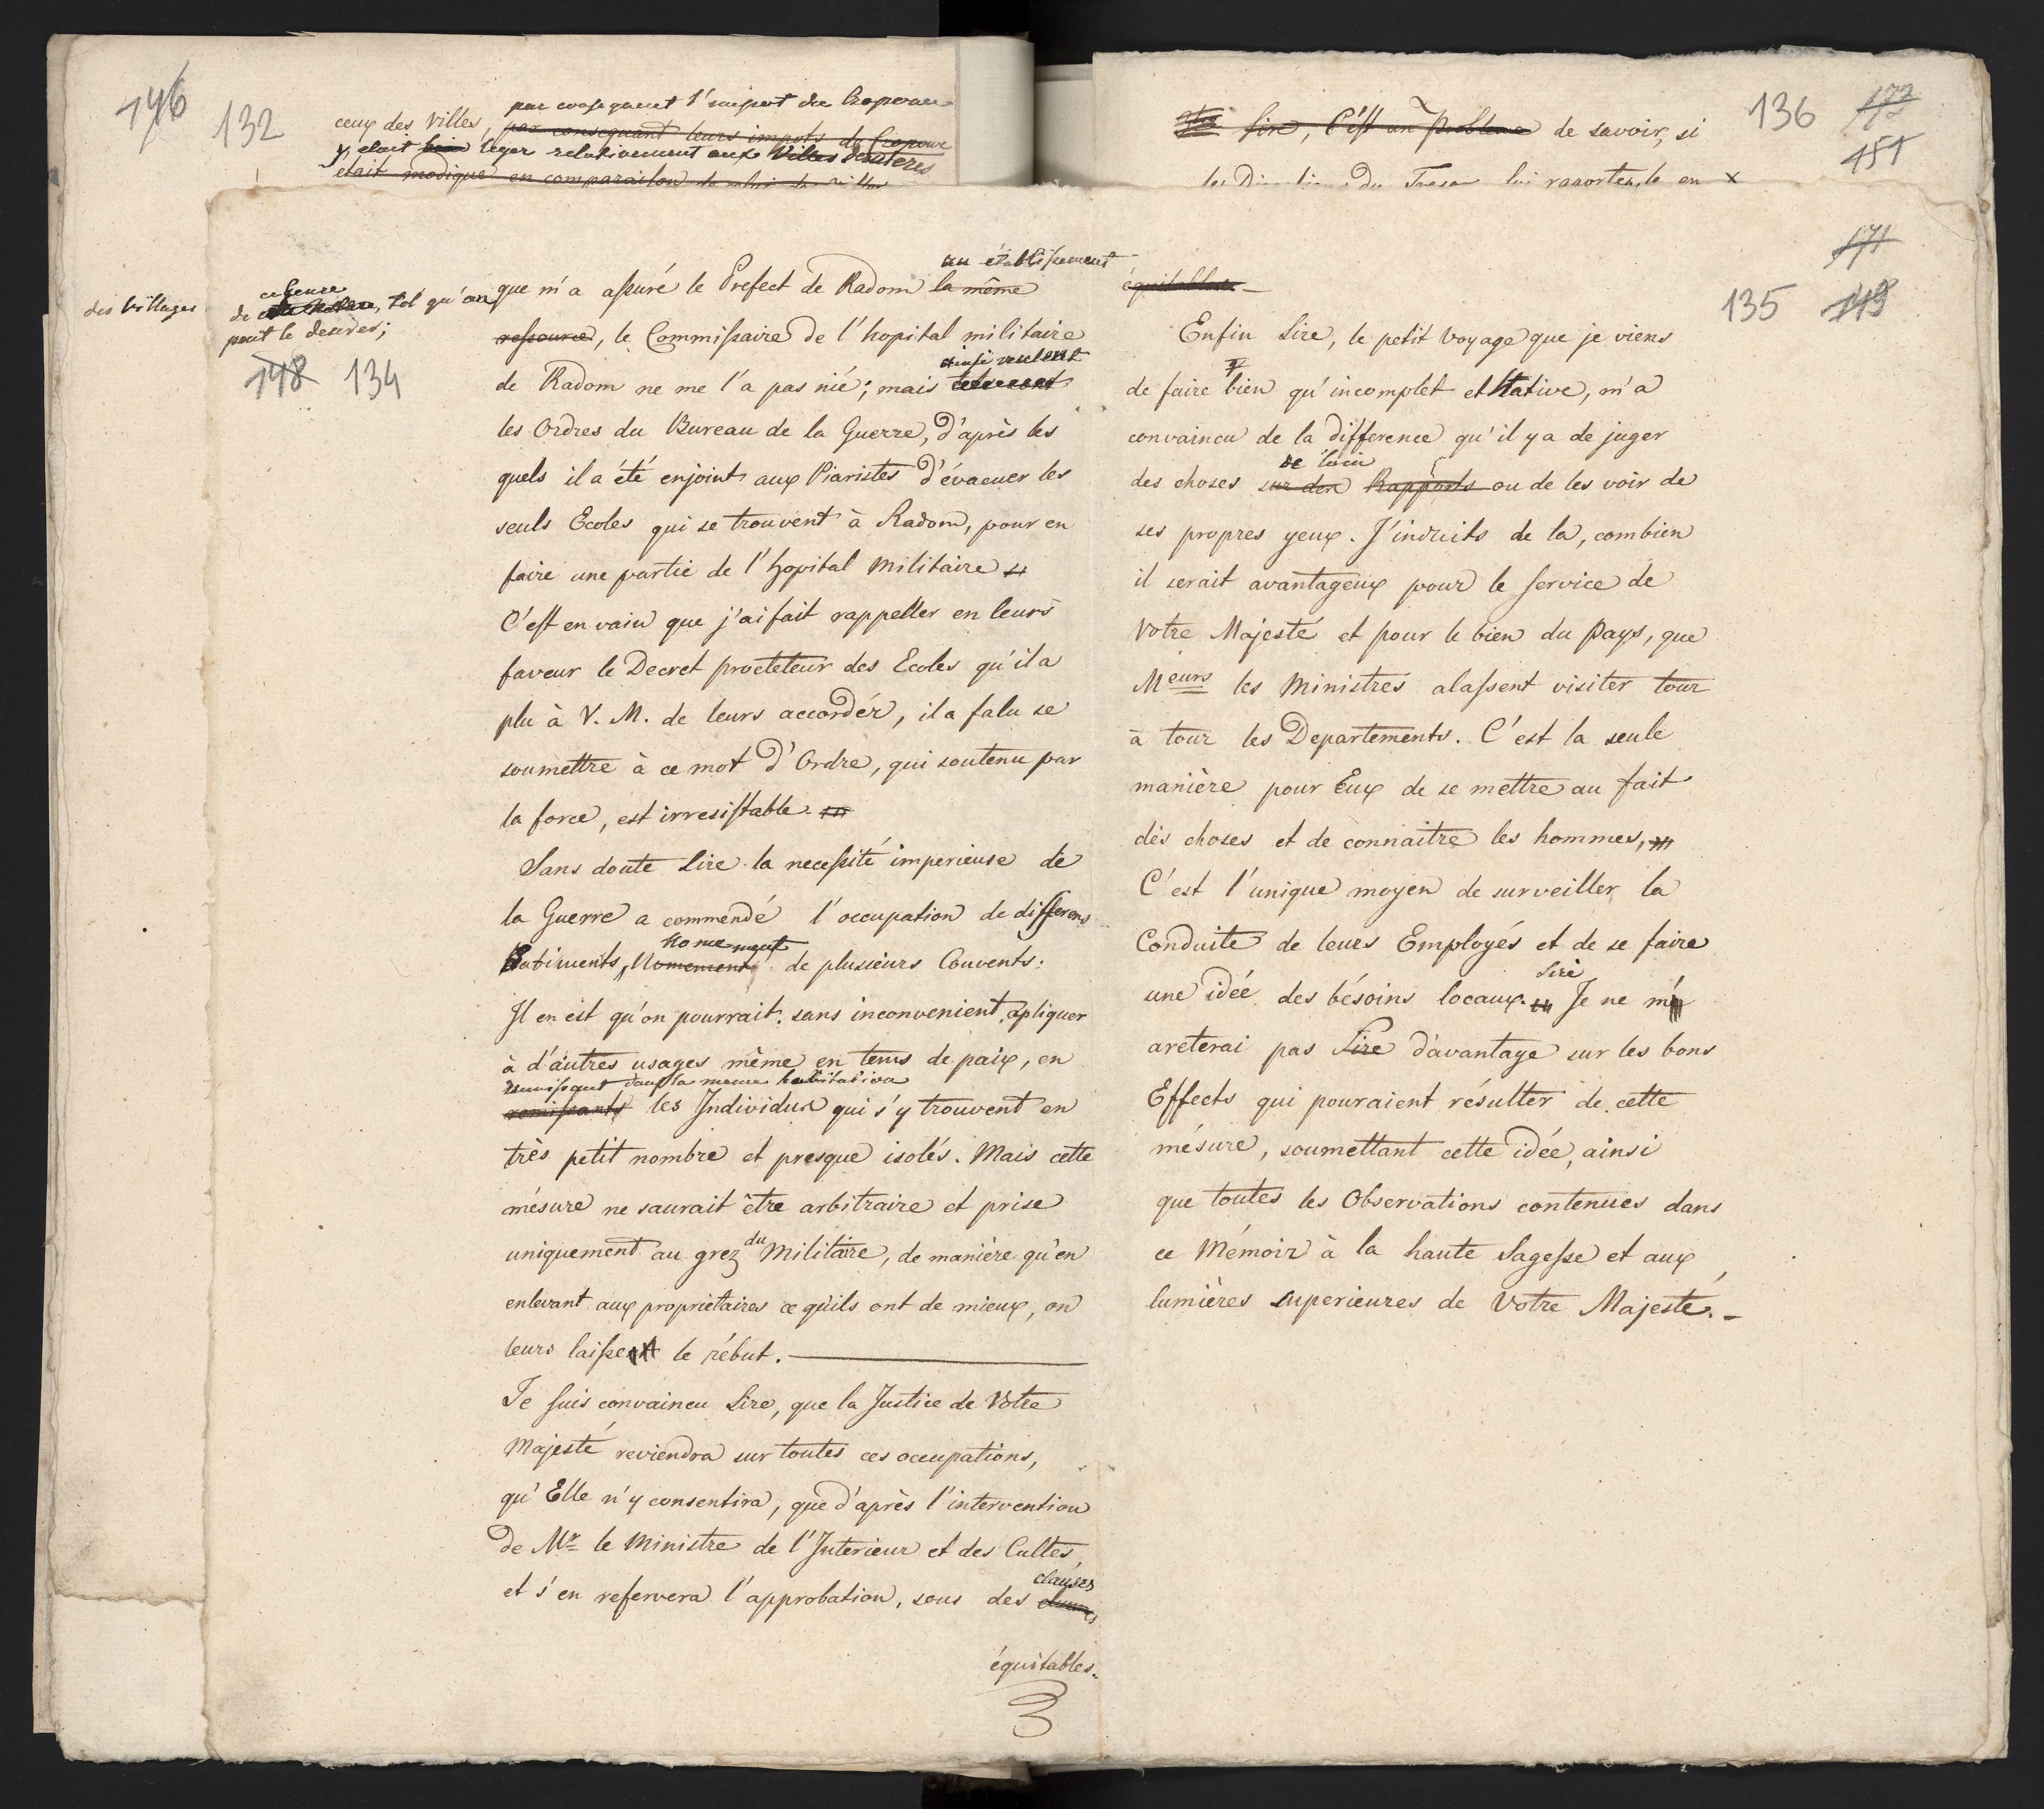 146
132
par consequent l'impot du Czopowe
ceux des Villes, par consequant leurs impots de Czopowe
y etait bien leger relativement aux Villes dernieres
était modique en comparaison
des Villages
136
173
151
Sire, C'est un Probleme de savoir, si
du Tresor lui raportent, le en x
ce genre
de cette Nature, tel qu'on
peut le desirer;
148 134
un établissement
que m'a assuré le Prefect de Radom la même
ressource, le Commissaire de l'hopital militaire
ainsi veulent
de Radom ne me l'a pas nié; mais
les Ordres du Bureau de la Guerre, d'après les
quels il a été enjoint aux Piaristes d'évacuer les
seuls Ecoles qui se trouvent à Radom, pour en
faire une partie de l'hopital militaire
C'est en vain que j'ai fait rappeller en leurs
faveur le Decret procteteur des Ecoles qu'il a
plu à V. M. de leurs accordér, il a falu se
soumettre à ce mot d'Ordre, qui soutenu par
la force, est irresistable.
Sans doute Sire la necessité imperieuse de
la Guerre a commendé l'occupation de differens
Nomement
Batiments, Nomement de plusieurs Couvents:
Il en est qu'on pourrait, sans inconvenient, apliquer
à d'autres usages même en tems de paix, en
reunissant dans la meme habitation
les Individus qui s'y trouvent en
très petit nombre et presque isolés. Mais cette
mésure ne saurait être arbitraire et prise
uniquement au grez du Militaire, de manière qu'en
enlevant aux propriétaires ce qu'ils ont de mieux, on
leurs laisse le rébut.
Je suis convaincu Sire, que la Justice de Votre
Majesté reviendra sur toutes ces occupations,
qu'Elle n'y consentira, que d'après l'intervention
de Mr le Ministre de l'Interieur et des Cultes,
et s'en reservera l'approbation, sous des
clauses
équitables.
171
135 149
équitables
Enfin Sire, le petit voyage que je viens
de faire bien qu'incomplet et hative, m'a
convaincu de la difference qu'il y a de juger
de loin
des choses sur des Rapports ou de les voir de
ses propres yeux. J'induits de la, combien
il serait avantageux pour le service de
Votre Majesté et pour le bien du Pays, que
Meurs les Ministres alassent visiter tour
à tour les Departements. C'est la seule
manière pour Eux de se mettre au fait
des choses et de connaitre les hommes,
C'est l'unique moyen de surveiller la
Conduite de leurs Employés et de se faire
Sire
une idée des bésoins locaux. Je ne m'
areterai pas Sire d'avantage sur les bons
Effects qui pouraient résulter de cette
mésure, soumettant cette idée, ainsi
que toutes les Observations contenues dans
ce Mémoir à la haute Sagesse et aux
lumières superieures de Votre Majesté.